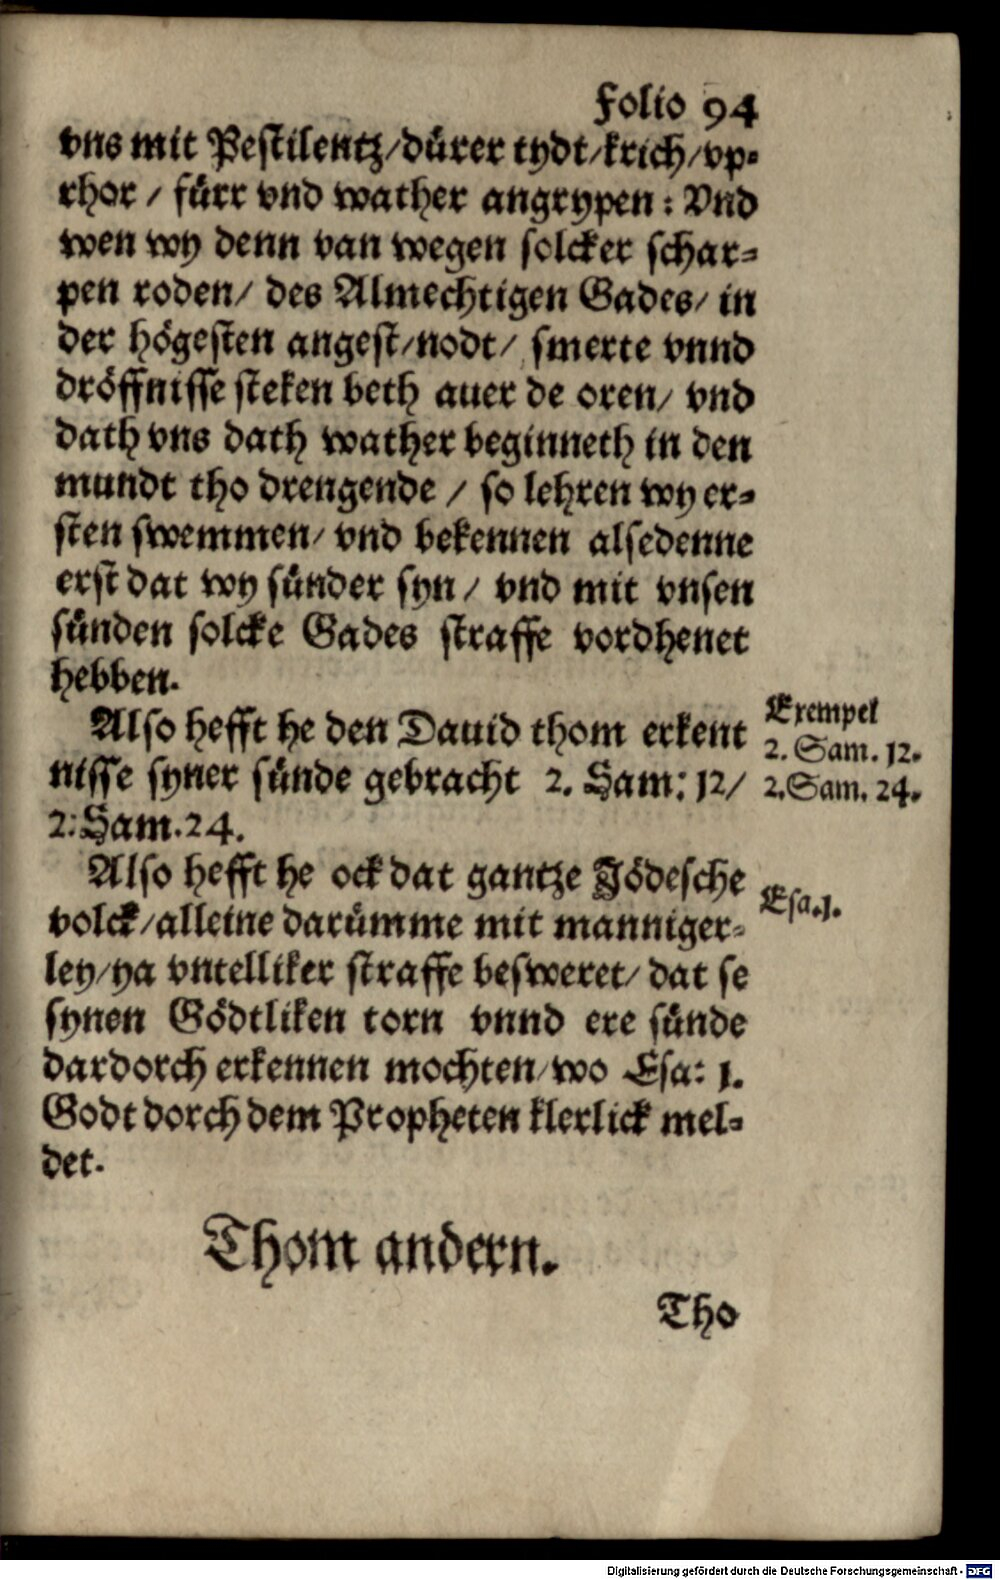 Folio 94
vns mit Pestilentz/dürer tydt/krich/vp-
rhor / fürr vnd wather angrypen: Vnd
wen wy denn van wegen solcker schar-
pen roden/ des Almechtigen Gades/ in
der högesten angest/nodt/ smerte vnnd
dröffnisse steken beth auer de oren/ vnd
dath vns dath wather beginneth in den
mundt tho drengende / so lehren wy er-
sten swemmen/ vnd bekennen alsedenne
erst dat wy sünder syn / vnd mit vnsen
sünden solcke Gades straffe vordhenet
hebben.
Also hefft he den Dauid thom erkent
nisse syner sünde gebracht 2. Sam: 12/
2: Sam. 24.
Exempel
2. Sam. 12.
2. Sam. 24.
Also hefft he ock dat gantze Jödesche
volck/alleine darümme mit manniger-
ley/ya vntelliker straffe besweret/ dat se
synen Gödtliken torn vnnd ere sünde
dardorch erkennen mochten/wo Esa: 1.
Godt dorch dem Propheten klerlick mel-
det.
Esa. 1.
Thom andern.
Tho
Digitalisierung gefördert durch die Deutsche Forschungsgemeinschaft - DFG